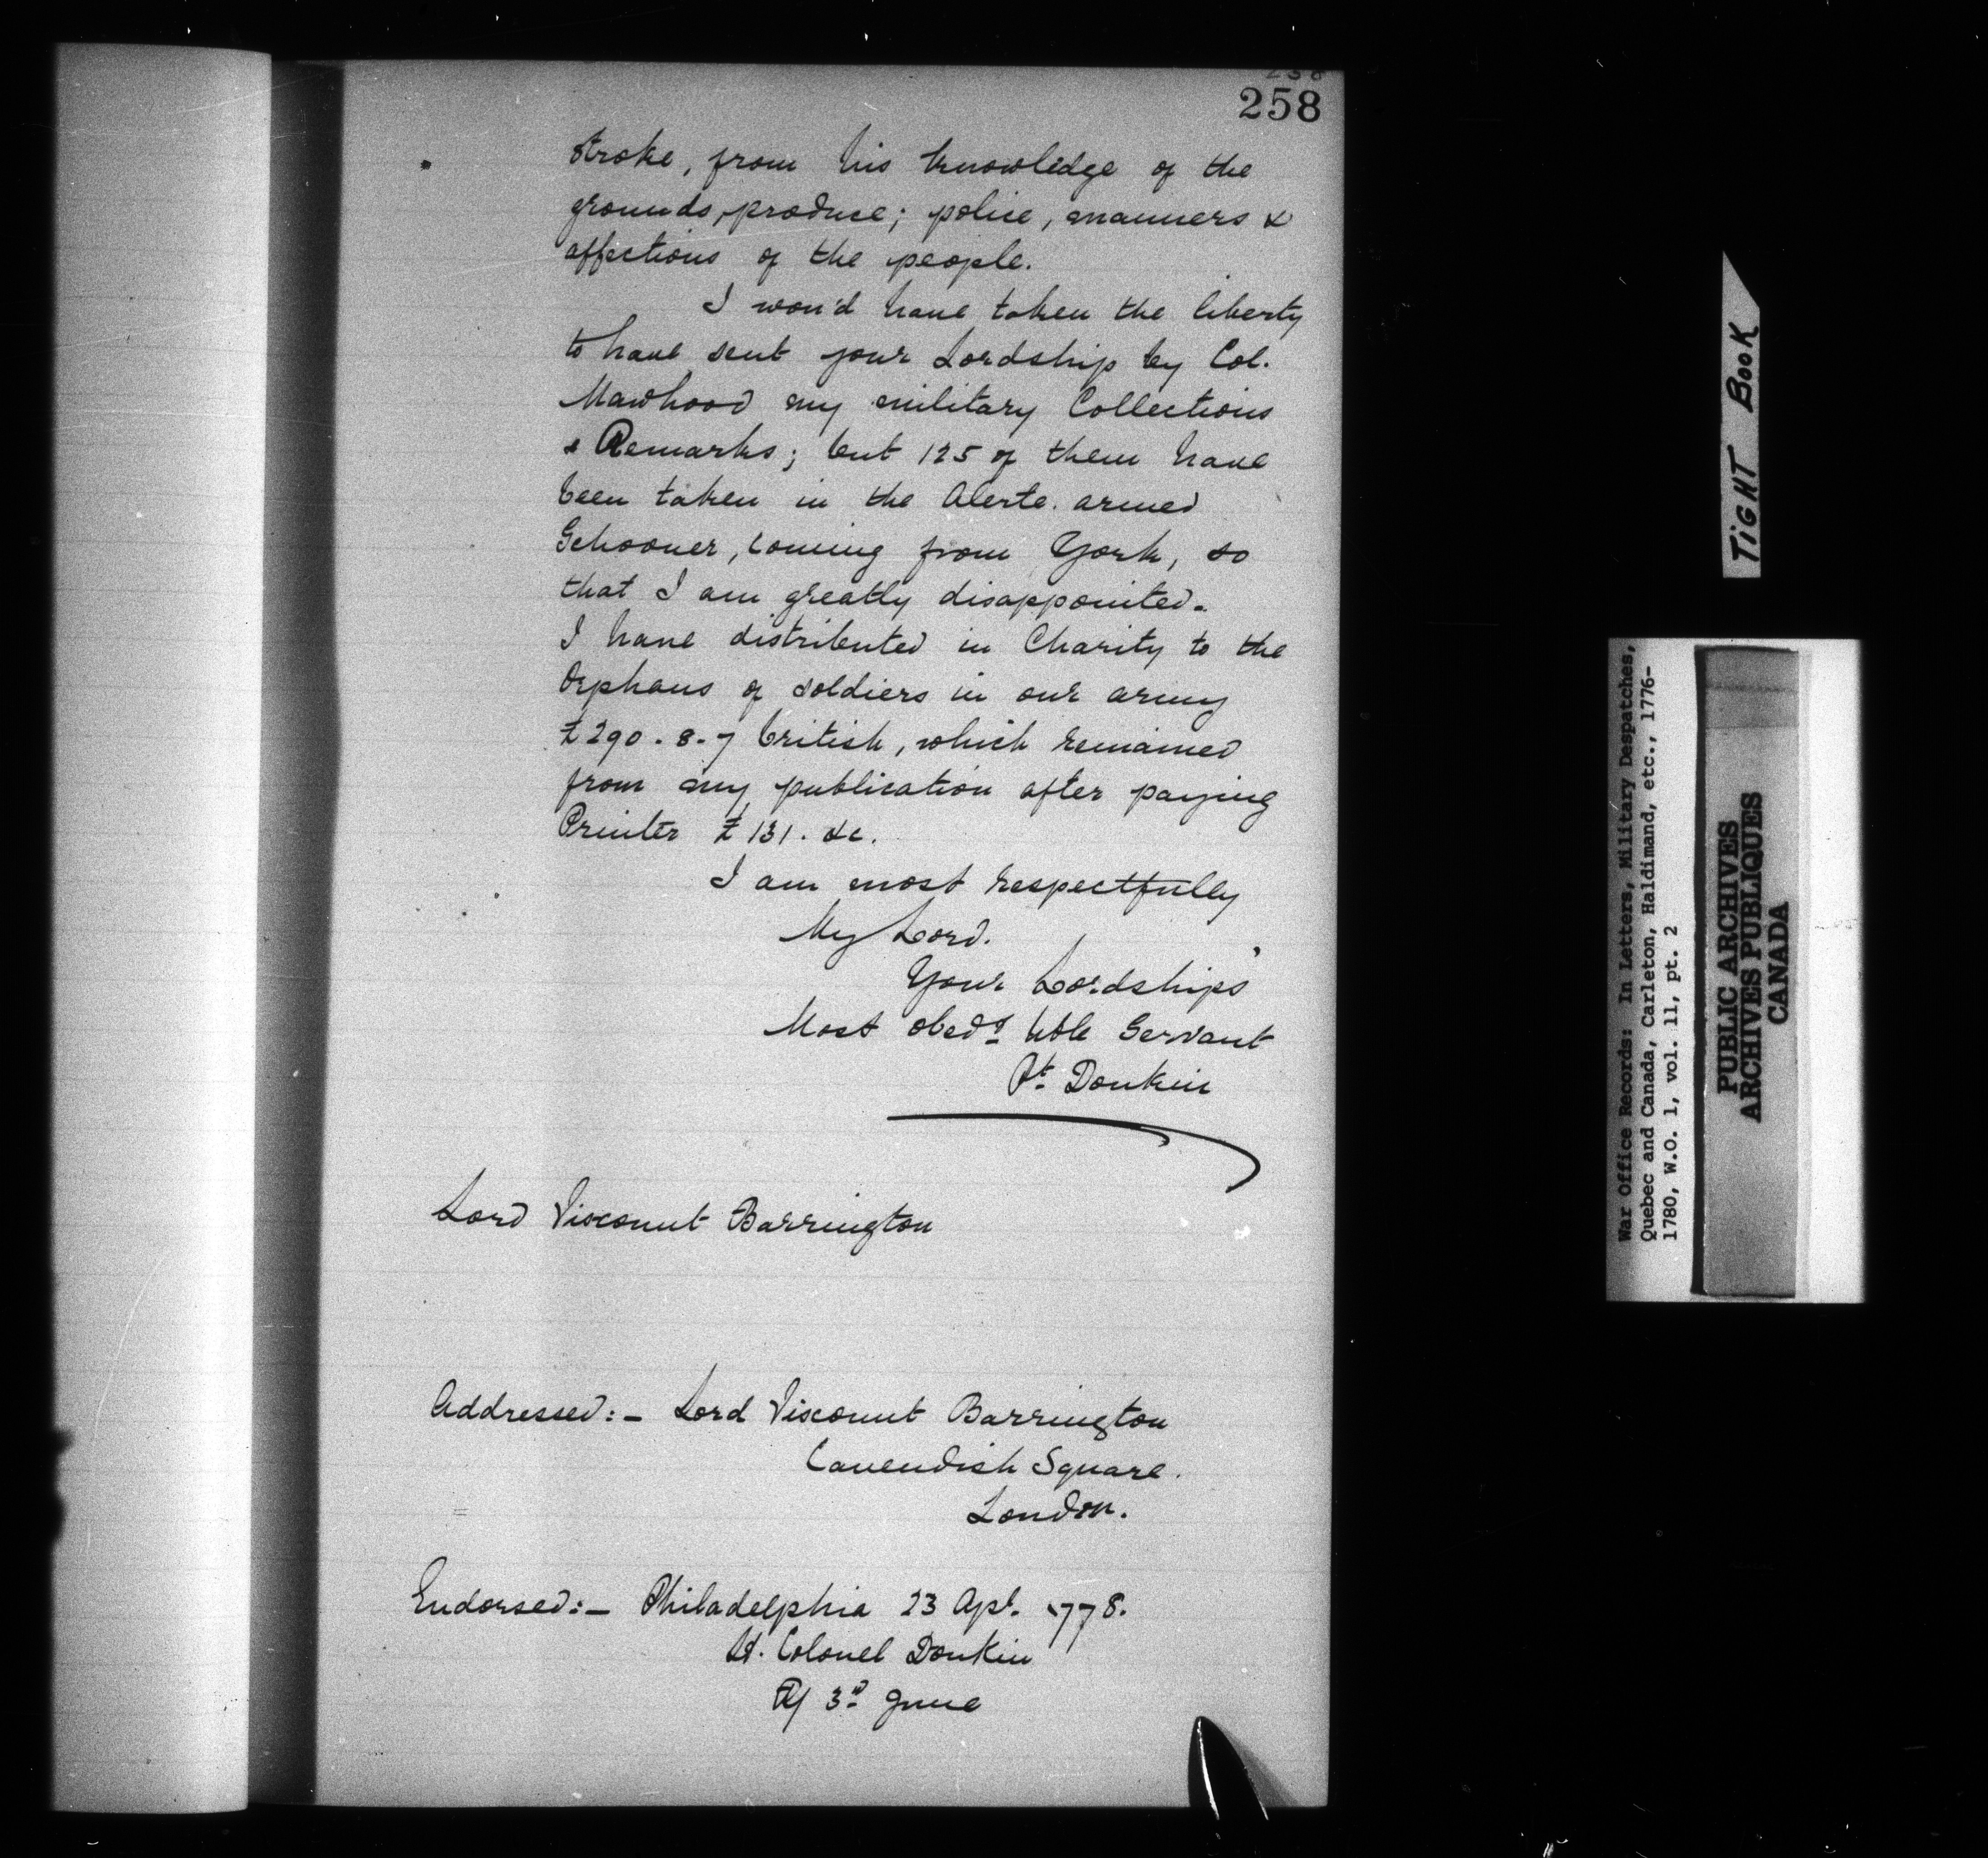 258
stroke, from his knowledge of the
grounds, produce; police, manners &
affections of the people.
I wou'd have taken the liberty
to have sent your Lordship by Col.
Mawhood my military Collections
& Remarks; but 125 of them have
been taken in the Alerte. armed
Schooner, coming from York, so
that I am greatly disappointed.
I have distributed in Charity to the
Orphans of soldiers in our army
£290-8-7 british, which remained
from my publication after paying
Printer £131. &c.
I am most respectfully
My Lord.
Your Lordships'
Most obedt hble Servant
Rt. Donkin
Lord Viscount Barrington
Addressed:- Lord Viscount Barrington
Cavendish Square.
London.
Endorsed:- Philadelphia 23 Apl. 1778.
Lt. Colonel Donkin
R/ 3d June
TIGHT BOOK
War Office Records: In Letters, Military Despatches,
Quebec and Canada, Carleton, Haldimand, etc., 1776-
1780, W.O. 1, vol. 11, pt. 2
PUBLIC ARCHIVES
ARCHIVES PUBLIQUES
CANADA